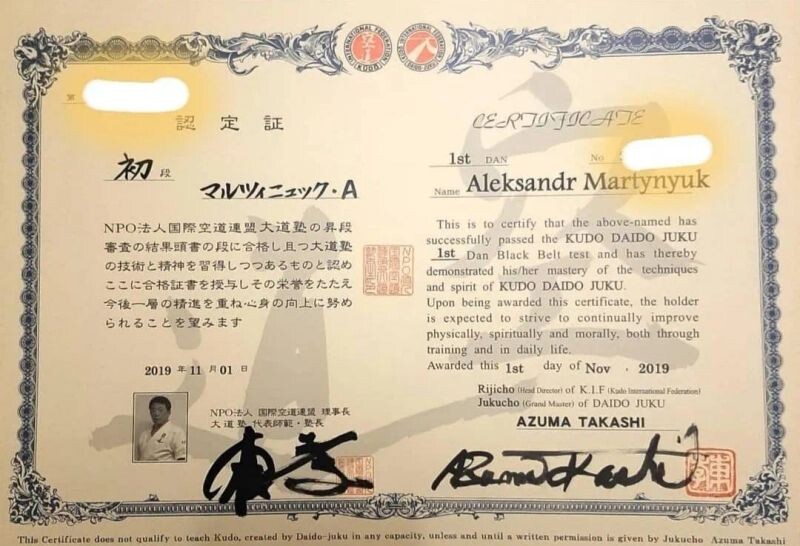 INTERNATIONAL FEDERATION KUDO
第
認定証
初段
マルツィニェック・A
NPO法人国際空道連盟大道塾の昇段
審査の結果頭書の段に合格し且つ大道塾
の技術と精神を習得しつつあるものと認め
ここに合格証書を授与しその栄誉をたたえ
今後一層の精進を重ね心身の向上に努め
られることを望みます
2019 年 11 月 01 日
NPO法人 国際空道連盟 理事長
大道塾 代表師範・塾長
CERTIFICATE
1st DAN No
Name Aleksandr Martynyuk
This is to certify that the above-named has
successfully passed the KUDO DAIDO JUKU
1st Dan Black Belt test and has thereby
demonstrated his/her mastery of the techniques
and spirit of KUDO DAIDO JUKU.
Upon being awarded this certificate, the holder
is expected to strive to continually improve
physically, spiritually and morally, both through
training and in daily life.
Awarded this 1st day of Nov , 2019
Rijicho (Head Director) of K.I.F (Kudo International Federation)
Jukucho (Grand Master) of DAIDO JUKU
AZUMA TAKASHI
Azuma Takashi
This Certificate does not qualify to teach Kudo, created by Daido-juku in any capacity, unless and until a written permission is given by Jukucho Azuma Takashi